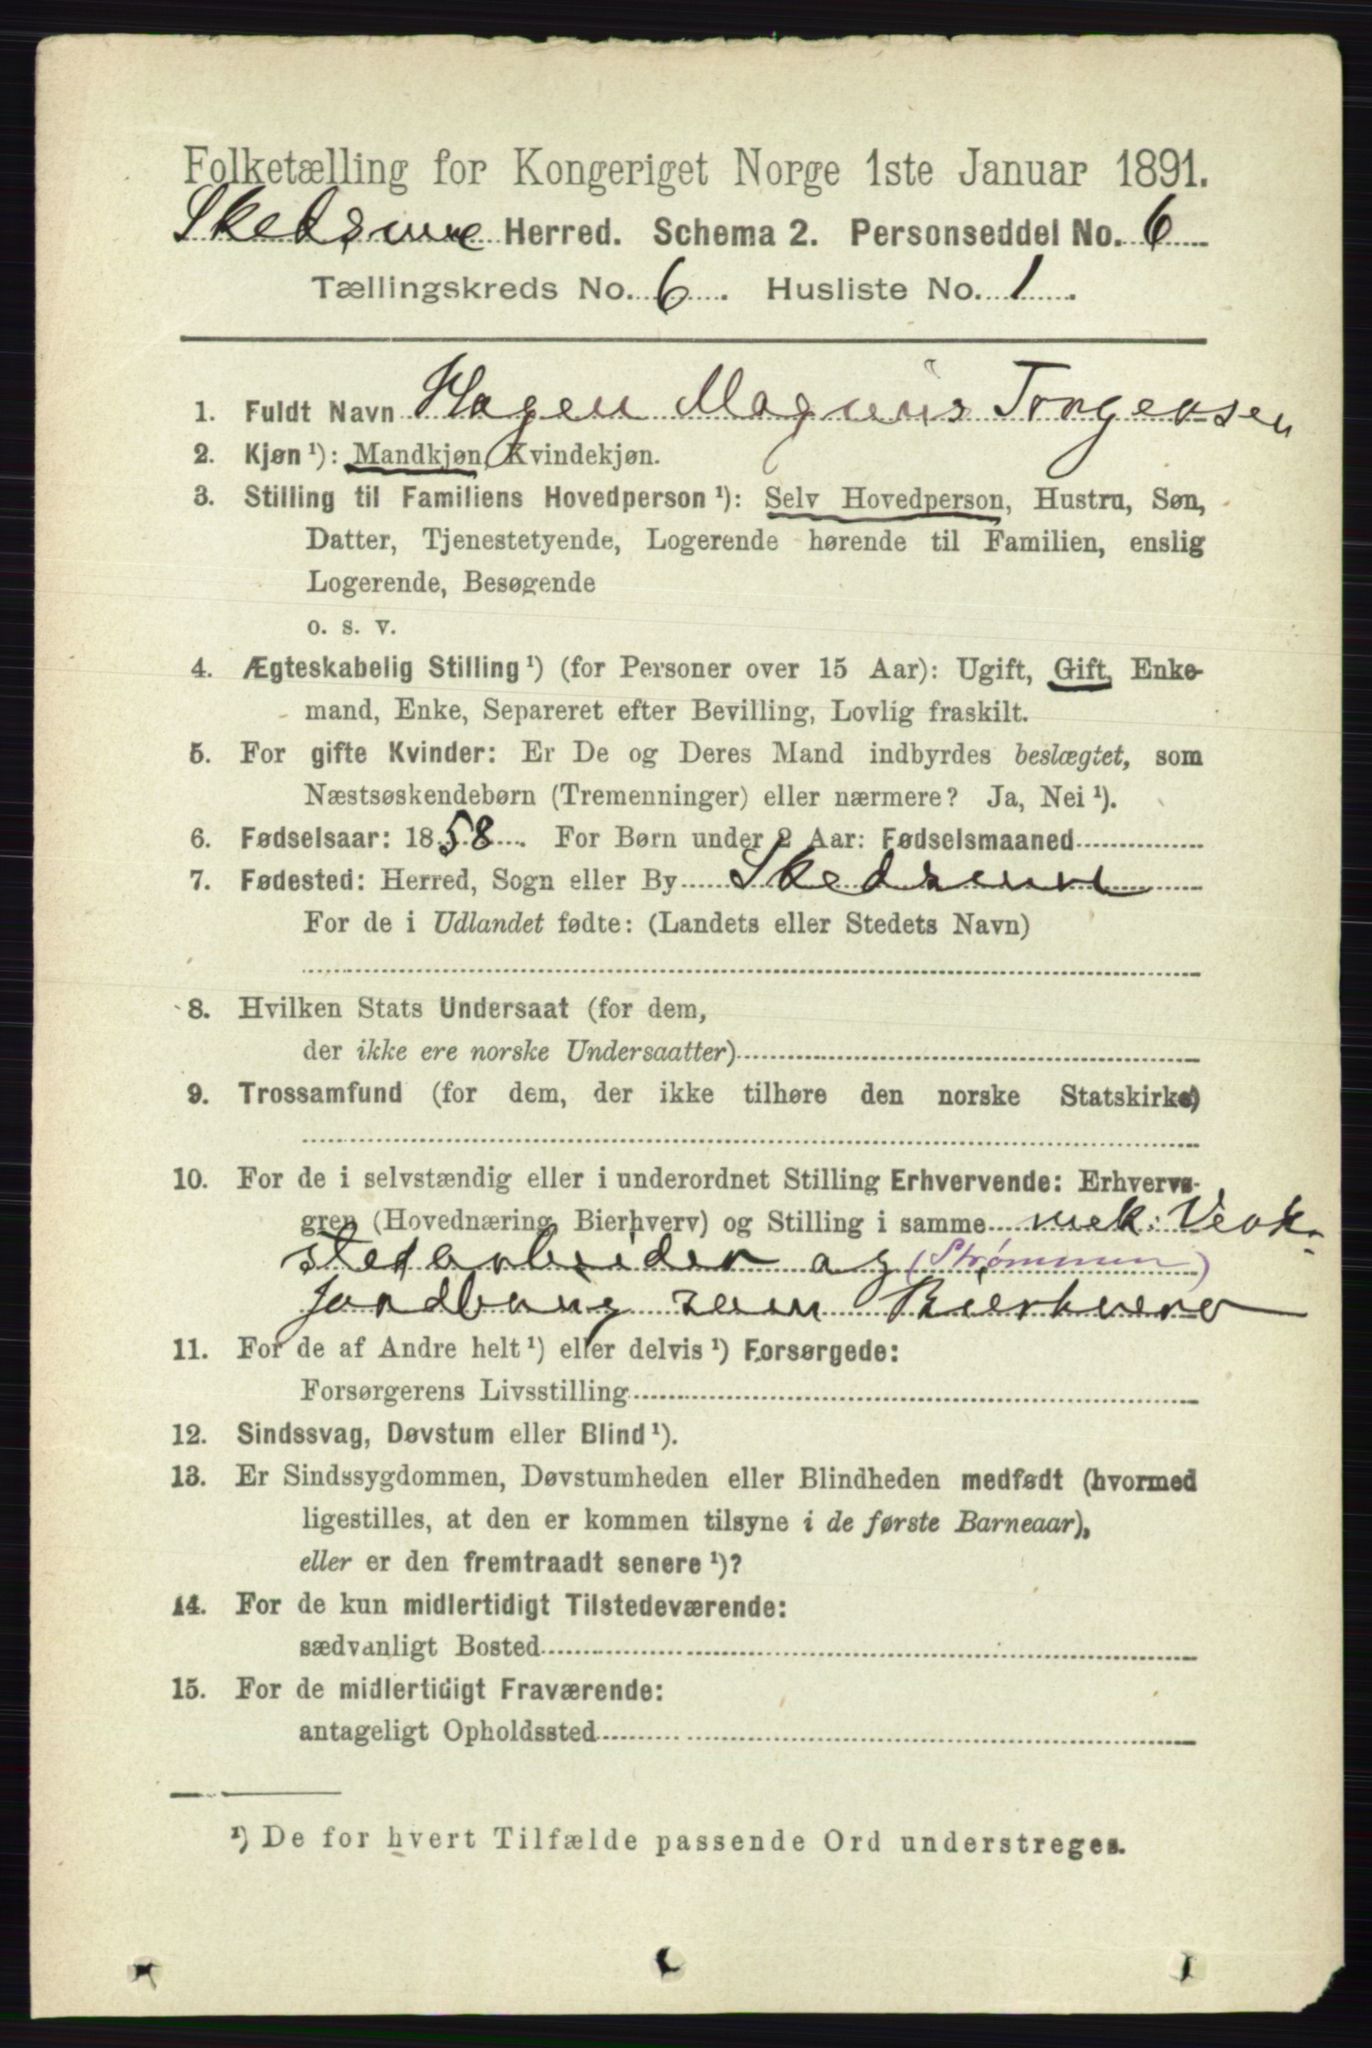 Folketælling for Kongeriget Norge 1ste Januar 1891.
Skedsmo Herred. Schema 2. Personseddel No. 6
Tællingskreds No. 6. Husliste No. 1.
1. Fuldt Navn Hagen Magnus Torgersen
2. Kjøn ¹): Mandkjøn, Kvindekjøn.
3. Stilling til Familiens Hovedperson ¹): Selv Hovedperson, Hustru, Søn,
Datter, Tjenestetyende, Logerende hørende til Familien, enslig
Logerende, Besøgende
o. s. v.
4. Ægteskabelig Stilling ¹) (for Personer over 15 Aar): Ugift, Gift, Enke-
mand, Enke, Separeret efter Bevilling, Lovlig fraskilt.
5. For gifte Kvinder: Er De og Deres Mand indbyrdes beslægtet, som
Næstsøskendebørn (Tremenninger) eller nærmere? Ja, Nei ¹).
6. Fødselsaar: 1858. For Børn under 2 Aar: Fødselsmaaned
7. Fødested: Herred, Sogn eller By Skedsmo
For de i Udlandet fødte: (Landets eller Stedets Navn)
8. Hvilken Stats Undersaat (for dem,
der ikke ere norske Undersaatter)
9. Trossamfund (for dem, der ikke tilhøre den norske Statskirke)
10. For de i selvstændig eller i underordnet Stilling Erhvervende: Erhvervs-
gren (Hovednæring, Bierhverv) og Stilling i samme mek. Verk-
stedarbeider og (Strømmen)
Jordbrug som Bierhverv
11. For de af Andre helt ¹) eller delvis ¹) Forsørgede:
Forsørgerens Livsstilling
12. Sindssvag, Døvstum eller Blind ¹).
13. Er Sindssygdommen, Døvstumheden eller Blindheden medfødt (hvormed
ligestilles, at den er kommen tilsyne i de første Barneaar),
eller er den fremtraadt senere ¹)?
14. For de kun midlertidigt Tilstedeværende:
sædvanligt Bosted
15. For de midlertidigt Fraværende:
antageligt Opholdssted
¹) De for hvert Tilfælde passende Ord understreges.